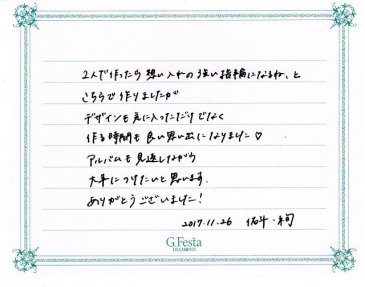 2人で作ったら想い入れの強い指輪になるね、と
こちらで作りましたが
デザインも気に入っただけでなく
作る時間も良い思い出になりました♡
アルバムも見返しながら
大事につけたいと思います。
ありがとうございました!
2017.11.26
G.Festa
DIAMOND